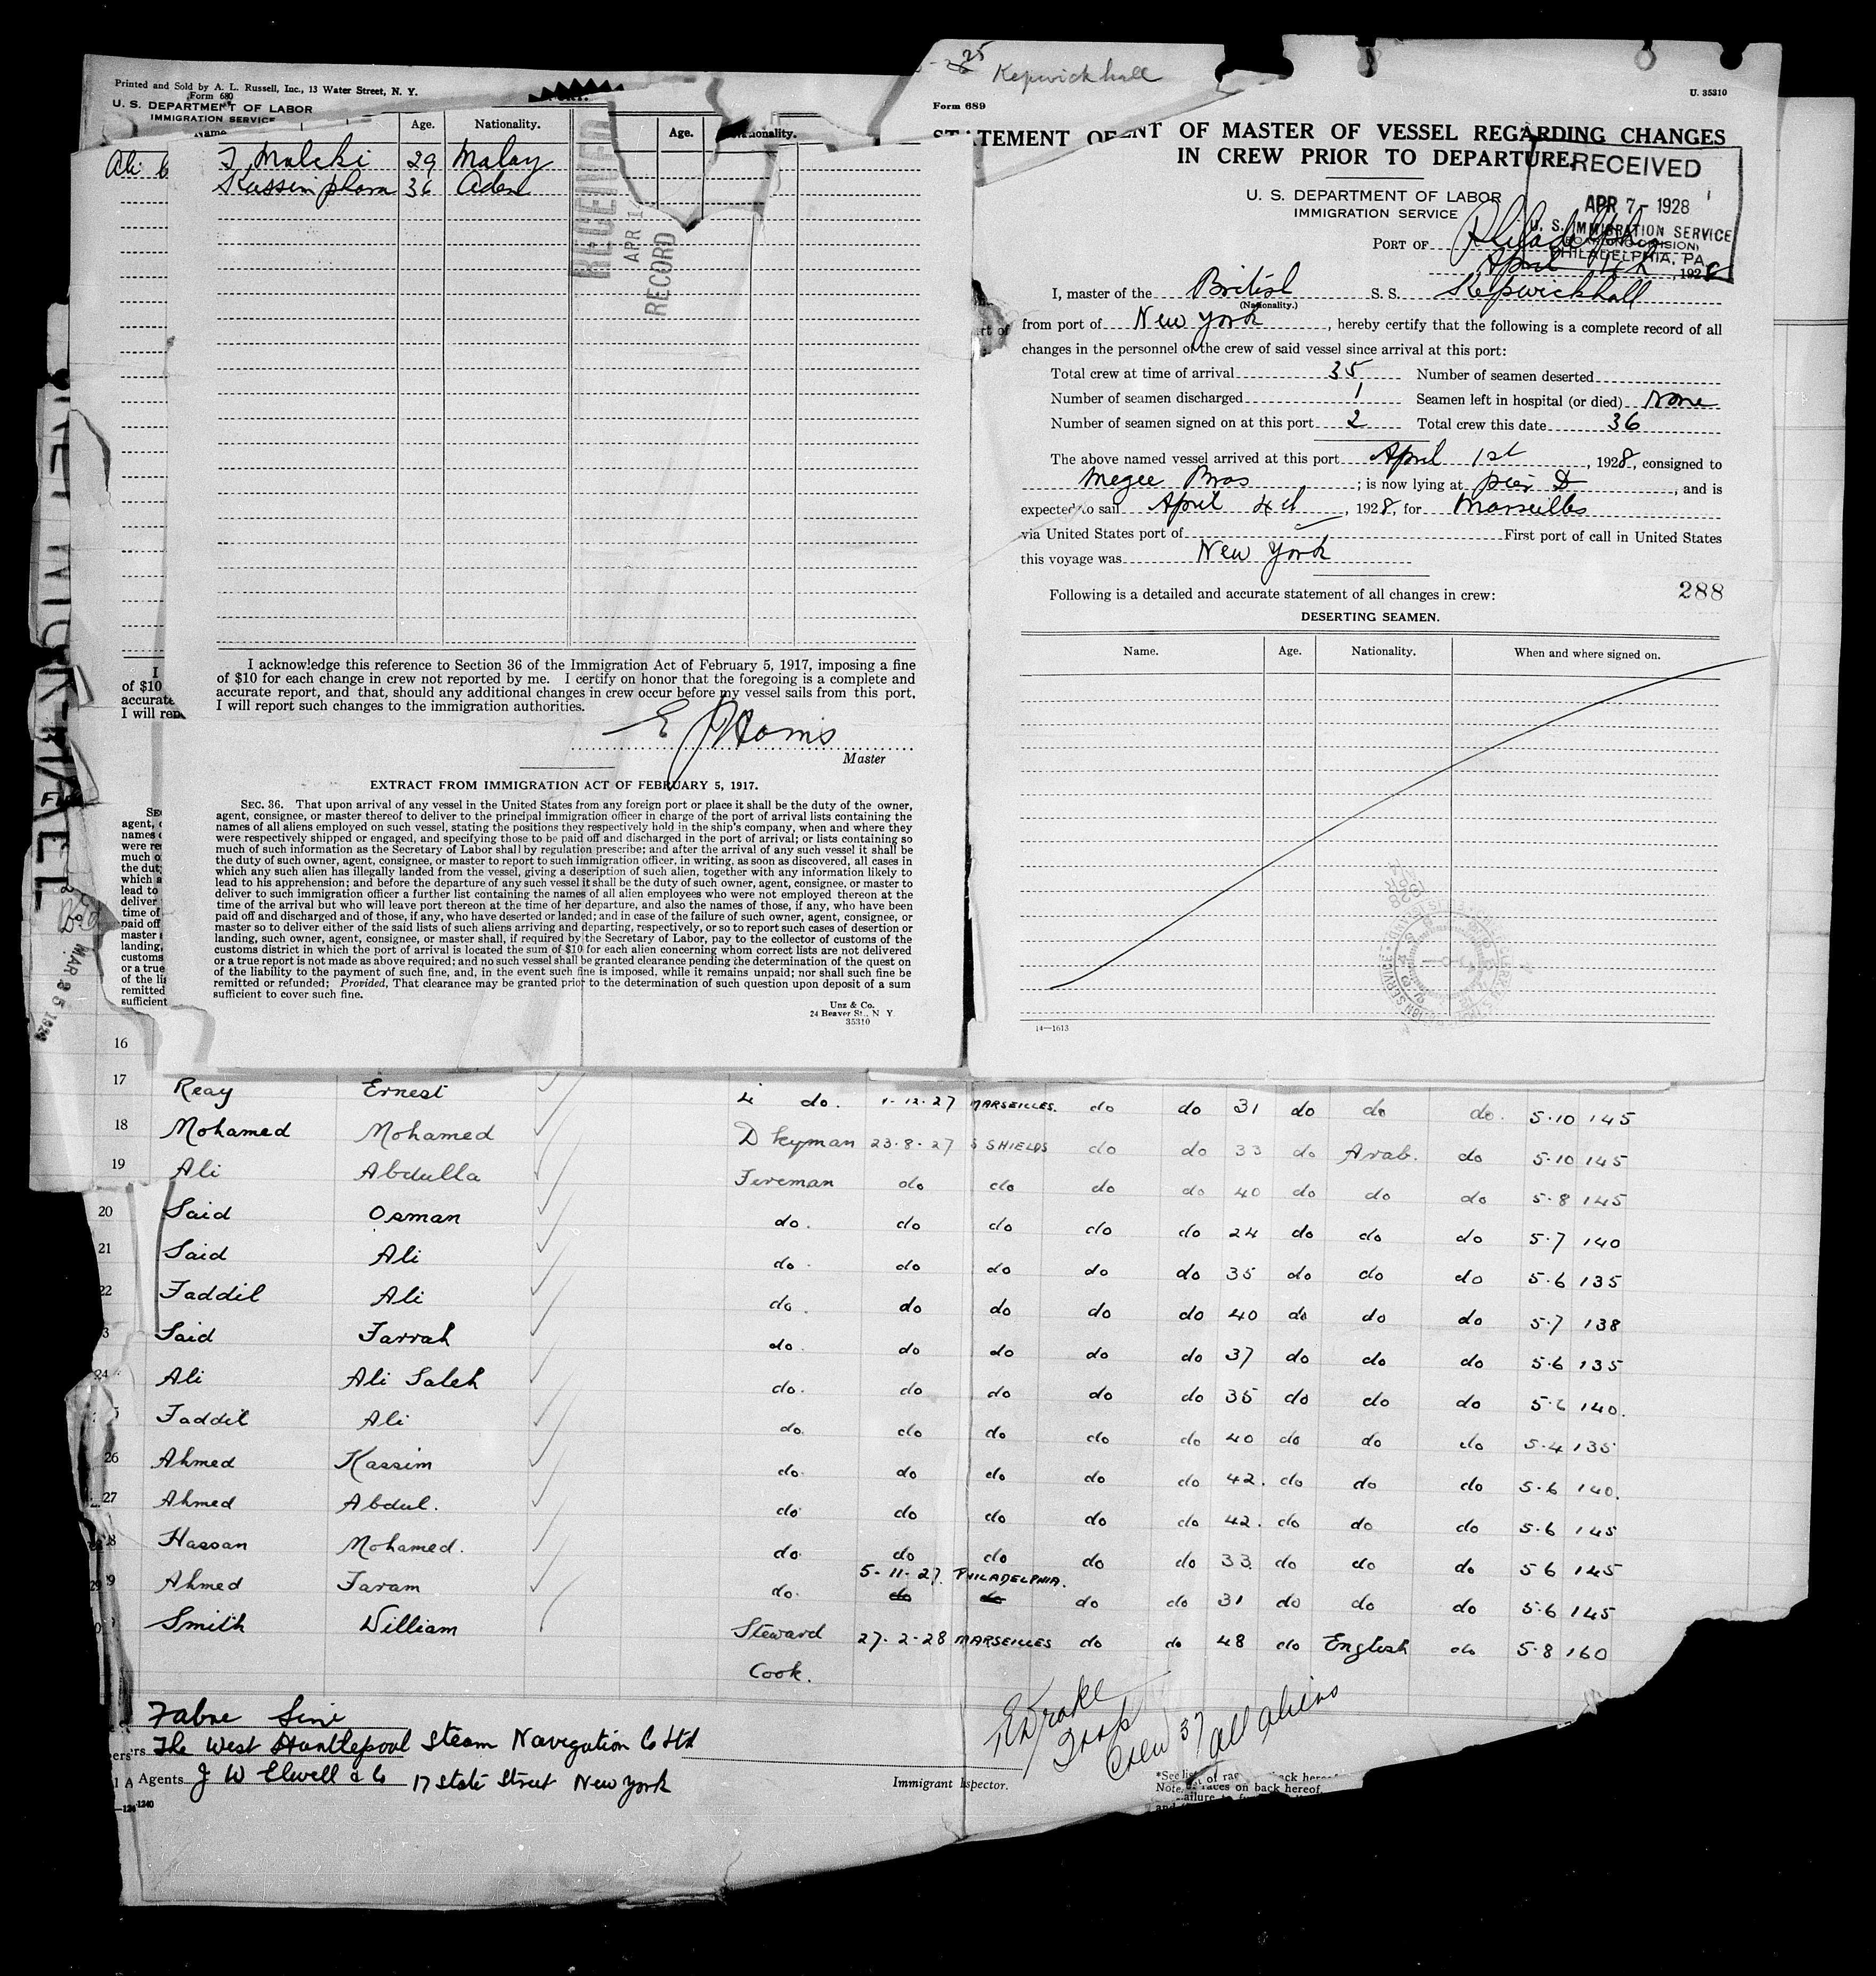 Printed and Sold by A. L. Russell, Inc., 13 Water Street, N. Y.
Form 680
U. S. DEPARTMENT OF LABOR
IMMIGRATION SERVICE
Name
Age. Nationality.
Age. Nationality.
Ali
Malcki 29 Malay
36 Aden
RECEIVED
APR 1
RECORD
I acknowledge this reference to Section 36 of the Immigration Act of February 5, 1917, imposing a fine
of $10 for each change in crew not reported by me. I certify on honor that the foregoing is a complete and
accurate report, and that, should any additional changes in crew occur before my vessel sails from this port,
I will report such changes to the immigration authorities.
Master
EXTRACT FROM IMMIGRATION ACT OF FEBRUARY 5, 1917.
SEC. 36. That upon arrival of any vessel in the United States from any foreign port or place it shall be the duty of the owner,
agent, consignee, or master thereof to deliver to the principal immigration officer in charge of the port of arrival lists containing the
names of all aliens employed on such vessel, stating the positions they respectively hold in the ship's company, when and where they
were respectively shipped or engaged, and specifying those to be paid off and discharged in the port of arrival; or lists containing so
much of such information as the Secretary of Labor shall by regulation prescribe; and after the arrival of any such vessel it shall be
the duty of such owner, agent, consignee, or master to report to such immigration officer, in writing, as soon as discovered, all cases in
which any such alien has illegally landed from the vessel, giving a description of such alien, together with any information likely to
lead to his apprehension; and before the departure of any such vessel it shall be the duty of such owner, agent, consignee, or master to
deliver to such immigration officer a further list containing the names of all alien employees who were not employed thereon at the
time of the arrival but who will leave port thereon at the time of her departure, and also the names of those, if any, who have been
paid off and discharged and of those, if any, who have deserted or landed; and in case of the failure of such owner, agent, consignee, or
master so to deliver either of the said lists of such aliens arriving and departing, respectively, or so to report such cases of desertion or
landing, such owner, agent, consignee, or master shall, if required by the Secretary of Labor, pay to the collector of customs of the
customs district in which the port of arrival is located the sum of $10 for each alien concerning whom correct lists are not delivered
or a true report is not made as above required; and no such vessel shall be granted clearance pending the determination of the quest on
of the liability to the payment of such fine, and, in the event such fine is imposed, while it remains unpaid; nor shall such fine be
remitted or refunded; Provided, That clearance may be granted prior to the determination of such question upon deposit of a sum
sufficient to cover such fine.
Unz & Co.
24 Beaver St., N. Y.
35310
MAR 25 1928
25
Kepwickhall
Form 689
U. 35310
STATEMENT OF MASTER OF VESSEL REGARDING CHANGES
IN CREW PRIOR TO DEPARTURE.
RECEIVED
APR 7 - 1928
U. S. IMMIGRATION SERVICE
PHILADELPHIA, PA.
U. S. DEPARTMENT OF LABOR
IMMIGRATION SERVICE
PORT OF Philadelphia
April 4th, 1928
I, master of the British S. S. Kepwickhall
(Nationality.)
from port of New York, hereby certify that the following is a complete record of all
changes in the personnel of the crew of said vessel since arrival at this port:
Total crew at time of arrival 35 Number of seamen deserted
Number of seamen discharged 1 Seamen left in hospital (or died) None
Number of seamen signed on at this port 2 Total crew this date 36
The above named vessel arrived at this port April 1st, 1928, consigned to
Megee Bros; is now lying at pier D, and is
expected to sail April 4th, 1928, for Marseilles
via United States port of First port of call in United States
this voyage was New York
288
Following is a detailed and accurate statement of all changes in crew:
DESERTING SEAMEN.
Name. Age. Nationality. When and where signed on.
14—1613
16
17 Reay Ernest 4 do. 1-12-27 MARSEILLES. do do 31 do do do. 5-10 145
18 Mohamed Mohamed D keyman 23-8-27 S SHIELDS do do 33 do Arab. do 5-10 145
19 Ali Abdulla Fireman do do do do 40 do do do 5-8 145
20 Said Osman do. do do do do 24 do do do 5-7 140
21 Said Ali do. do do do do 35 do do do 5-6 135
22 Faddil Ali do. do do do do 40 do do do 5-7 138
3 Said Farrah do. do do do do 37 do do do 5-6 135
24 Ali Ali Saleh do. do do do do 35 do do do 5-6 140.
5 Faddil Ali do. do do do do 40 do do do 5-4 135
26 Ahmed Kassim do. do do do do 42. do do do 5-6 140.
27 Ahmed Abdul. do. do do do do 42. do do do 5-6 145
28 Hassan Mohamed. do. do do do do 33 do do do 5 6 145
5-11-27. PHILADELPHIA.
29 Ahmed Faram do. do do do do 31 do do do 5-6 145
Smith William Steward 27-2-28 MARSEILLES do do 48 do English do 5-8 160
Cook.
Fabre Line
The West Hartlepool Steam Navigation Co Ltd
Agents J W Elwell & Co 17 State Street New York
Immigrant Inspector.
E Drake
Crew 37 all aliens